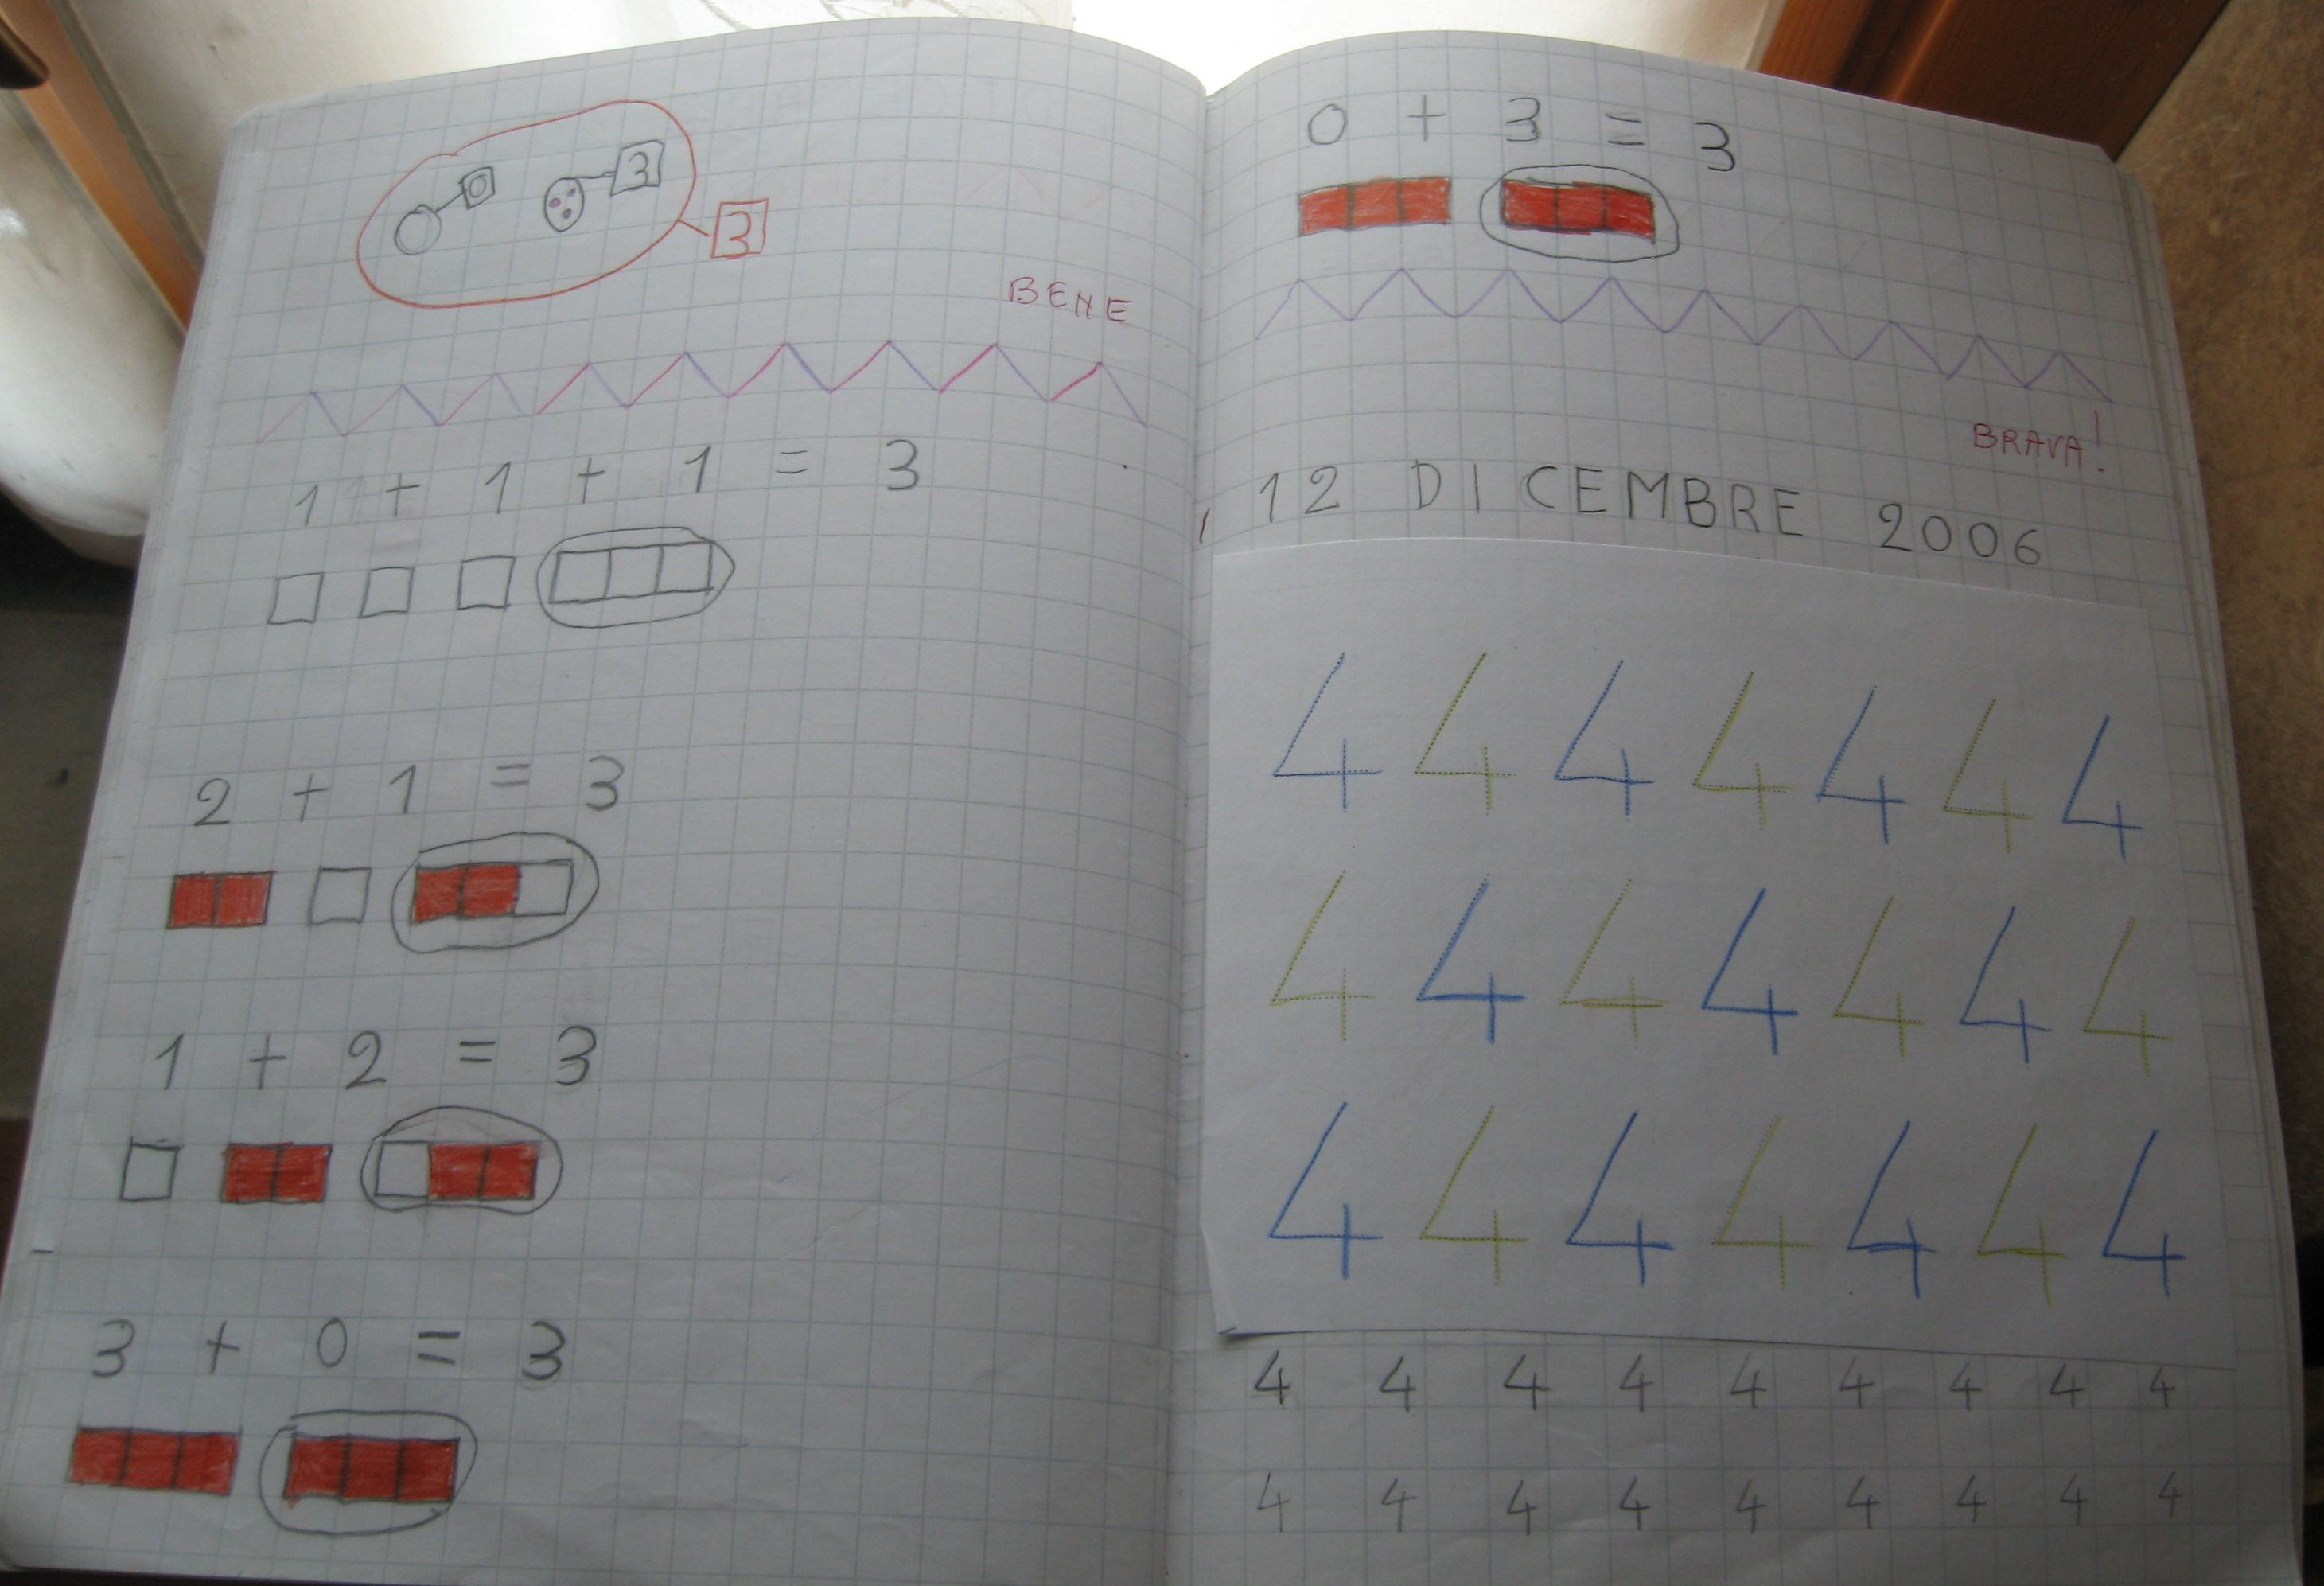 0 3
3
BENE
1 + 1 + 1 = 3
2 + 1 = 3
1 + 2 = 3
3 + 0 = 3
0 + 3 = 3
BRAVA!
12 DICEMBRE 2006
4 4 4 4 4 4 4
4 4 4 4 4 4 4
4 4 4 4 4 4 4
4 4 4 4 4 4 4 4 4
4 4 4 4 4 4 4 4 4